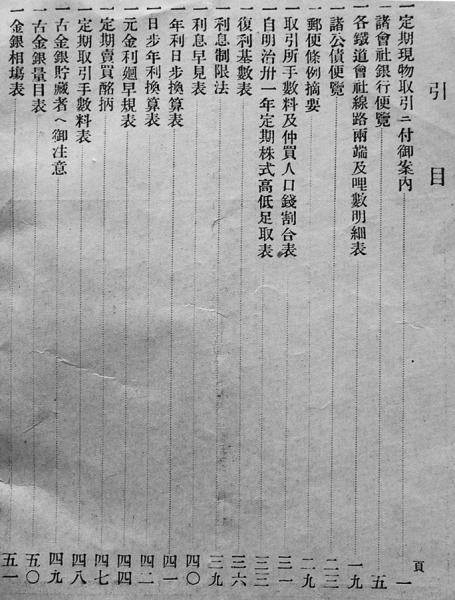 引目
頁
一定期現物取引ニ付御案内 一
一諸會社銀行便覽 五
一各鐵道會社線路兩端及哩數明細表 一九
一諸公債便覽 二三
一郵便條例摘要 二九
一取引所手數料及仲買人口錢割合表 三一
一自明治卅一年定期株式高低足取表 三三
一復利基數表 三六
一利息制限法 三九
一利息早見表 四〇
一年利日步換算表 四一
一日步年利換算表 四二
一元金利廻早規表 四四
一定期賣買酩柄 四七
一定期取引手數料表 四八
一古金銀貯藏者へ御注意 四九
一古金銀量目表 五〇
一金銀相塲表 五一